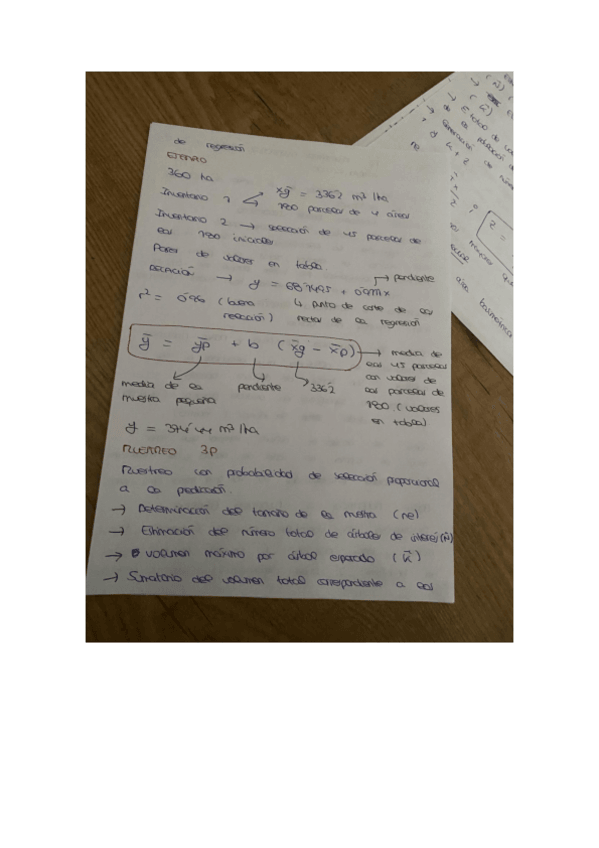 de regresión
EJEMPLO
360 ha
Inventario 1 x̄g = 336'2 m³/ha
→ 180 parcelas de 4 áreas
Inventario 2 → selección de 45 parcelas de
las 180 iniciales
Pares de valores en tabla
ECUACIÓN → y = 68'7495 + 0'9111x → pendiente
r² = 0'96 (buena relación) ↳ punto de corte de la
rectas de la regresión
ȳ = ȳp + b (x̄g - x̄p) → media de
las 45 parcelas
con valores de
las parcelas de
180. (valores
en tabla)
media de la
muestra pequeña
pendiente
336'2
y = 374'44 m³/ha
MUESTREO 3P
Muestreo con probabilidad de selección proporcional
a la predicción
→ Determinación del tamaño de la muestra (ne)
→ Estimación del número total de árboles de interés (N)
→ volumen máximo por árbol esperado (k̄)
→ Sumatorio del volumen total correspondiente a las